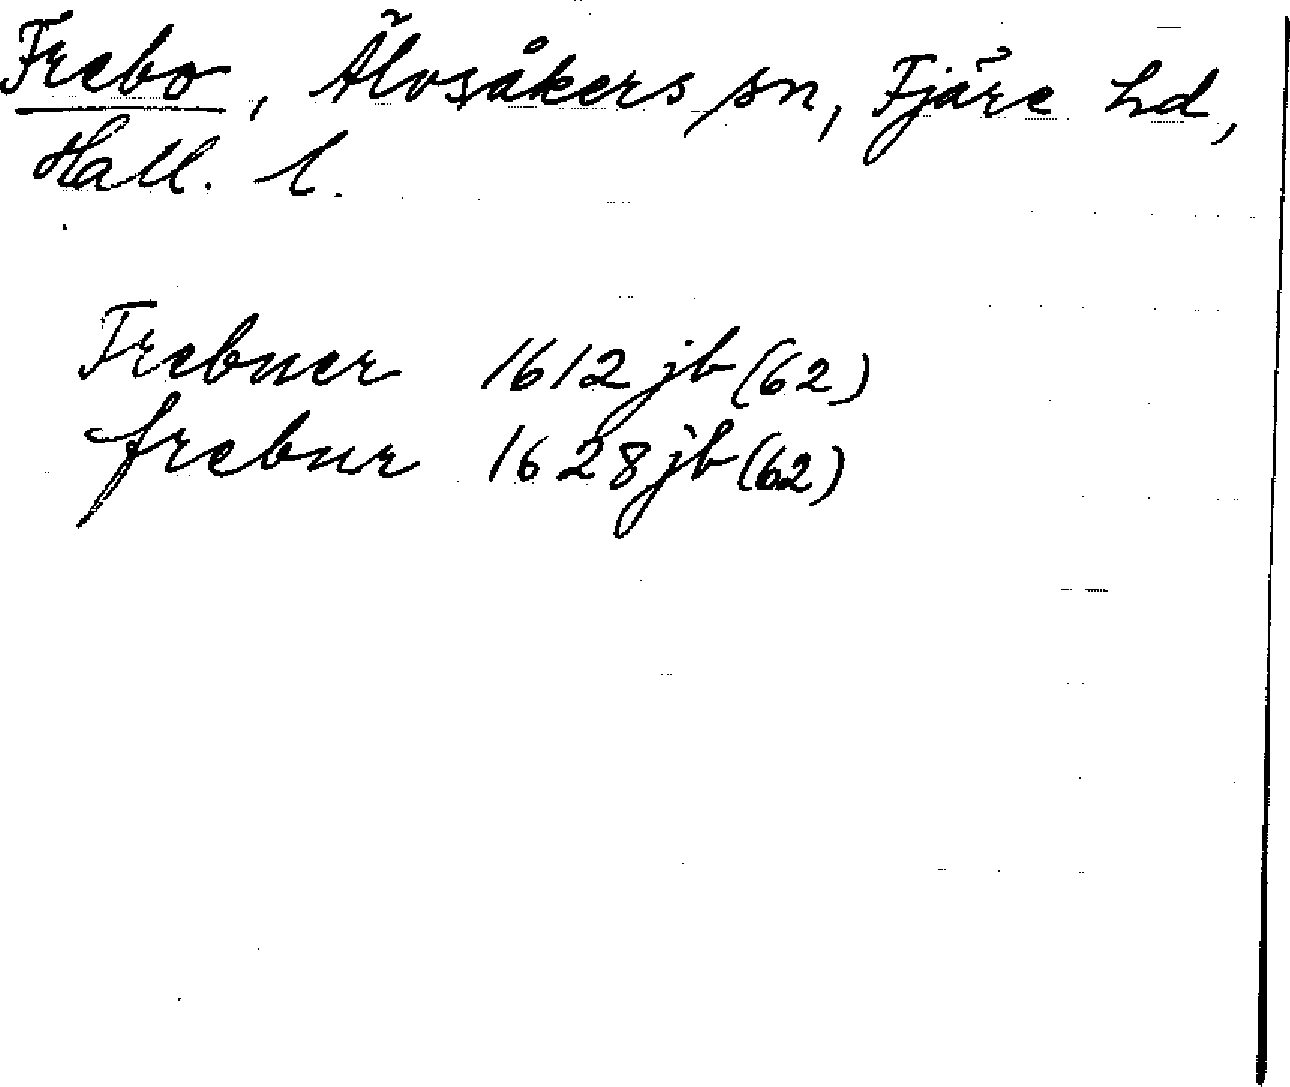 Frebo, Älvsåkers sn, Fjäre hd,
Hall. l.
Frebner 1612 jb (62)
frebnr 1628 jb (62)